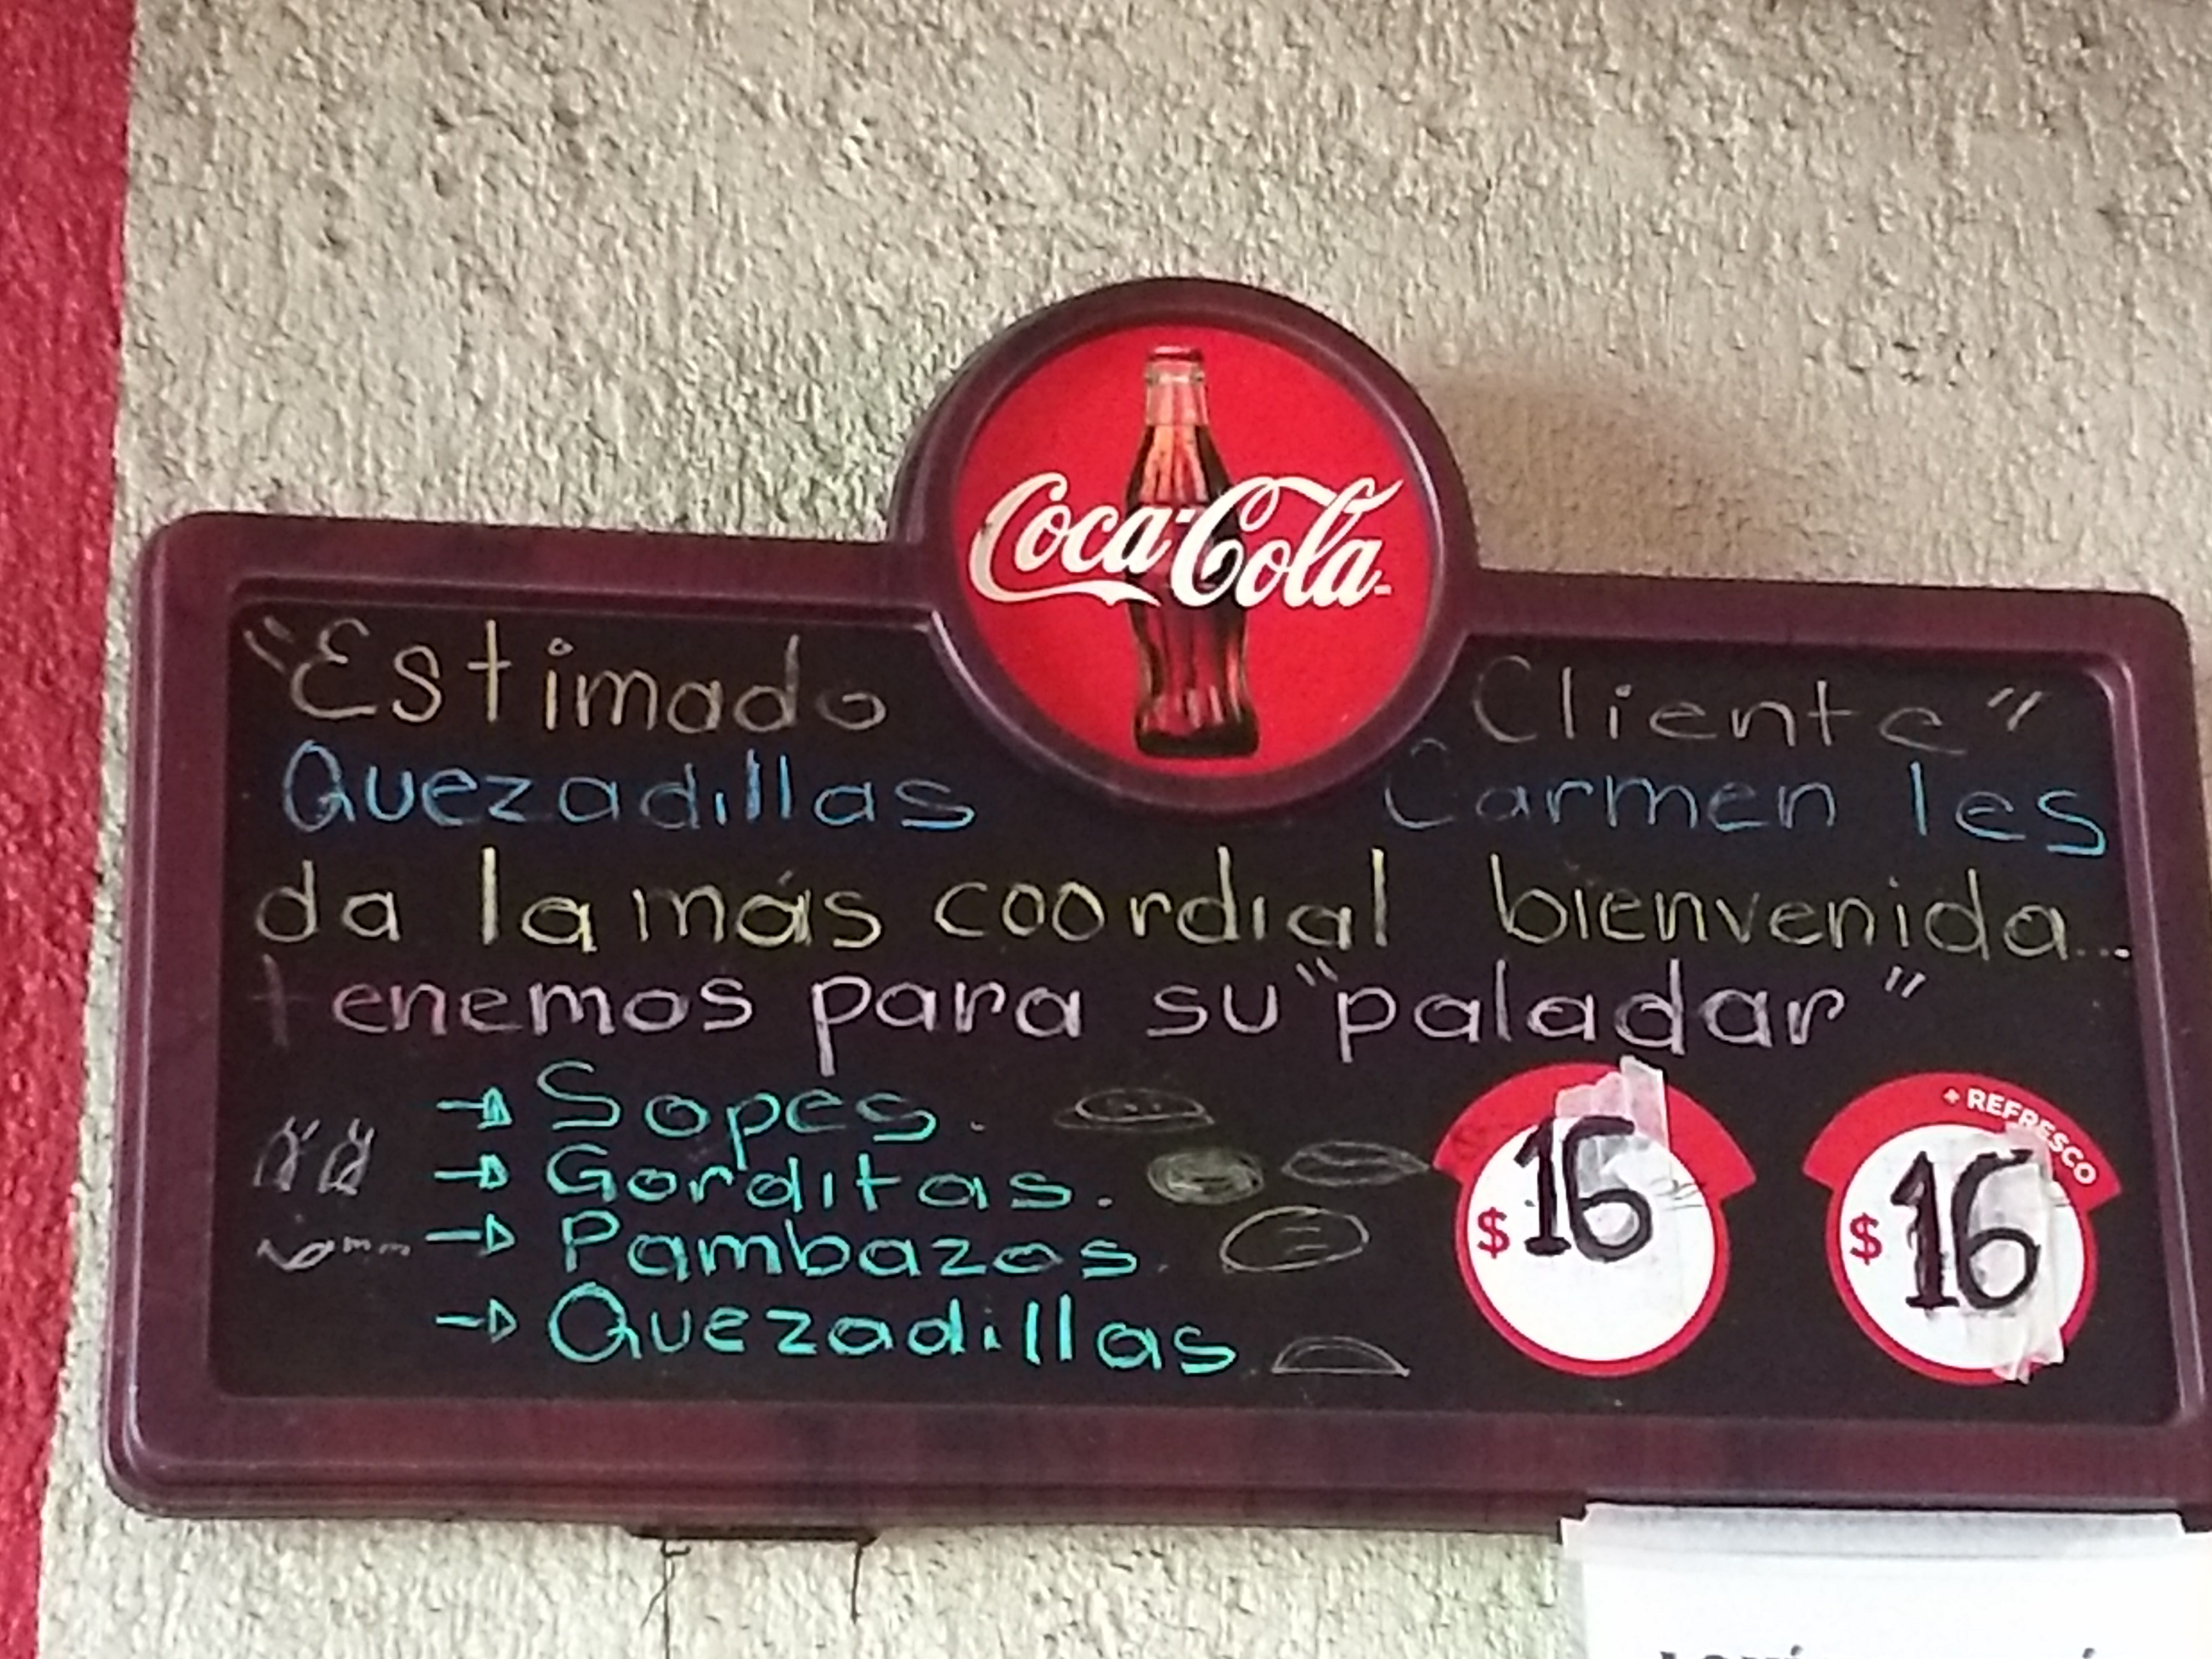 Coca-Cola
"Estimado Cliente"
Quezadillas Carmen les
da la más coordial bienvenida...
tenemos para su "paladar"
→ Sopes.
→ Gorditas.
→ Pambazos.
→ Quezadillas
$16
+ REFRESCO
$16